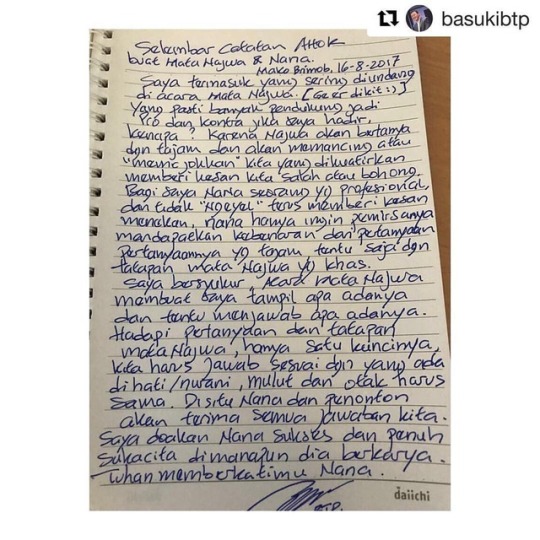 basukibtp
Selembar Catatan Ahok
buat Mata Najwa & Nana.
Mako Brimob, 16-8-2017
Saya termasuk yang sering diundang
di acara Mata Najwa. (Ge er dikit :))
Yang pasti banyak pendukung jadi
Pro dan kontra jika saya hadir,
kenapa? Karena Najwa akan bertanya
dgn tajam dan akan memancing atau
"memojokkan" kita yang dikuatirkan
memberi kesan kita salah atau bohong.
Bagi saya Nana seorang yg profesional,
dan tidak "Ngeyel" terus memberi kesan
menekan, nana hanya ingin pemirsanya
mendapatkan kebenaran dari pertanyaan
pertanyaannya yg tajam tentu saja dgn
tatapan mata Najwa yg khas.
Saya bersyukur, Acara Mata Najwa
membuat saya tampil apa adanya
dan tentu menjawab apa adanya.
Hadapi pertanyaan dan tatapan
mata Najwa, hanya satu kuncinya,
kita harus jawab sesuai dgn yang ada
di hati/nurani, mulut dan otak harus
sama. Disitu Nana dan penonton
akan terima semua jawaban kita.
Saya doakan Nana sukses dan penuh
sukacita dimanapun dia berkarya.
Tuhan memberkatimu Nana.
BTP.
daiichi